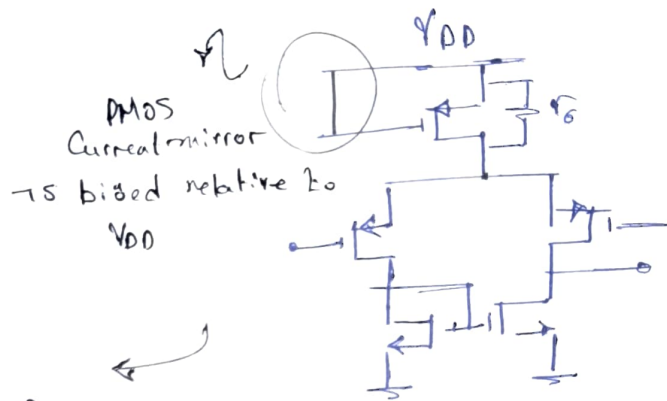 VDD
PMOS
Current mirror
is biased relative to
VDD
r₀